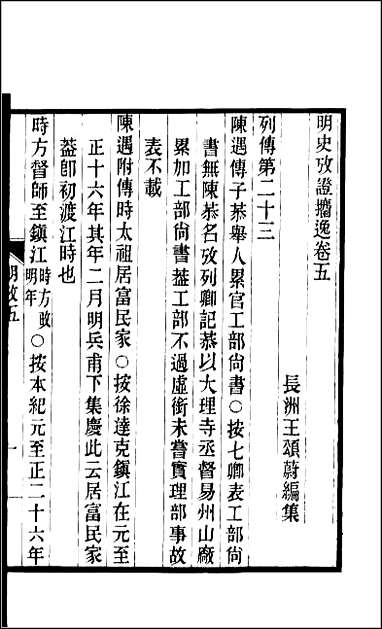 明史攷證攟逸卷五
長洲王頌蔚編集
列傳第二十三
陳遇傳子恭舉人累官工部尚書○按七卿表工部尚
書無陳恭名攷列卿記恭以大理寺丞督易州山廠
累加工部尚書葢工部不過虛銜未嘗實理部事故
表不載
陳遇附傳時太祖居富民家○按徐達克鎮江在元至
正十六年其年二月明兵甫下集慶此云居富民家
葢卽初渡江時也
時方督師至鎮江時方改明年○按本紀元至正二十六年
明攷五
一